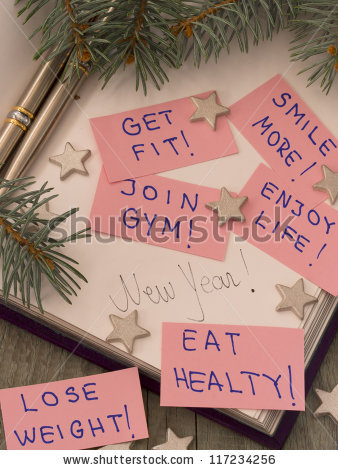 GET
FIT!
SMILE
MORE!
JOIN
GYM!
ENJOY
LIFE!
New Year!
EAT
HEALTY!
LOSE
WEIGHT!
www.shutterstock.com · 117234256